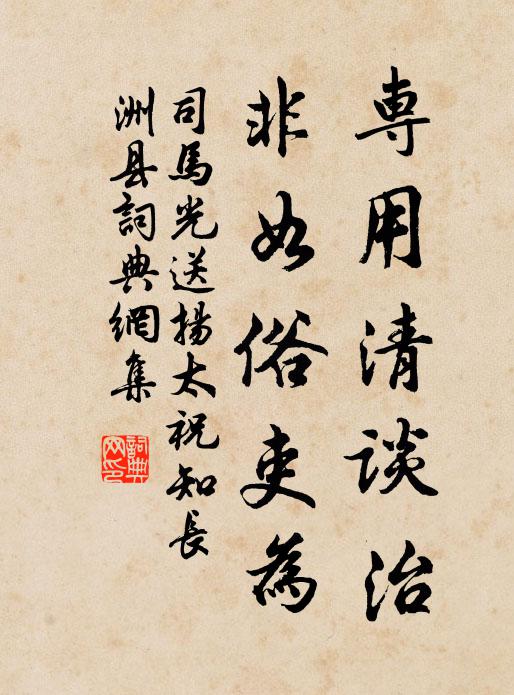 専用清談治
非如俗吏為
司馬光送揚太祝知長
洲县詞典網集
詞典
网印